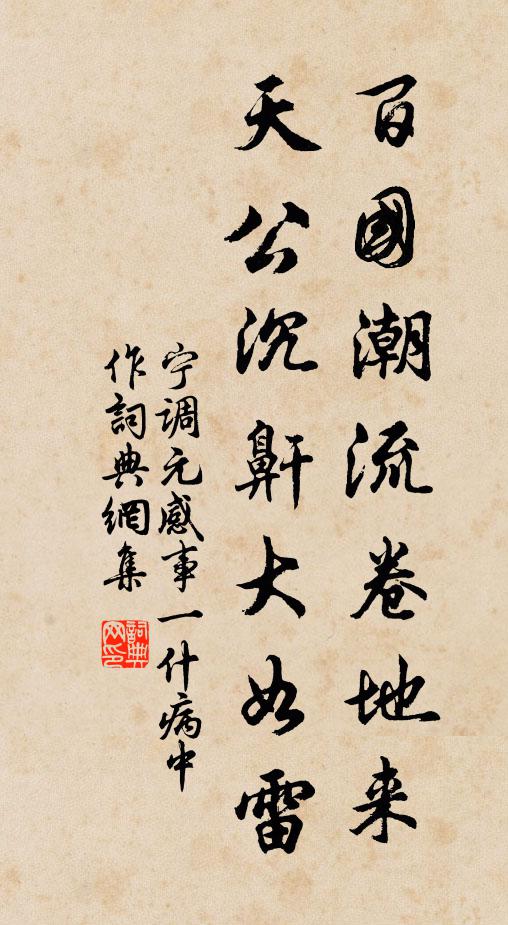 百國潮流卷地来
天公沉鼾大如雷
宁调元感事一什病中
作詞典網集
詞典
网印